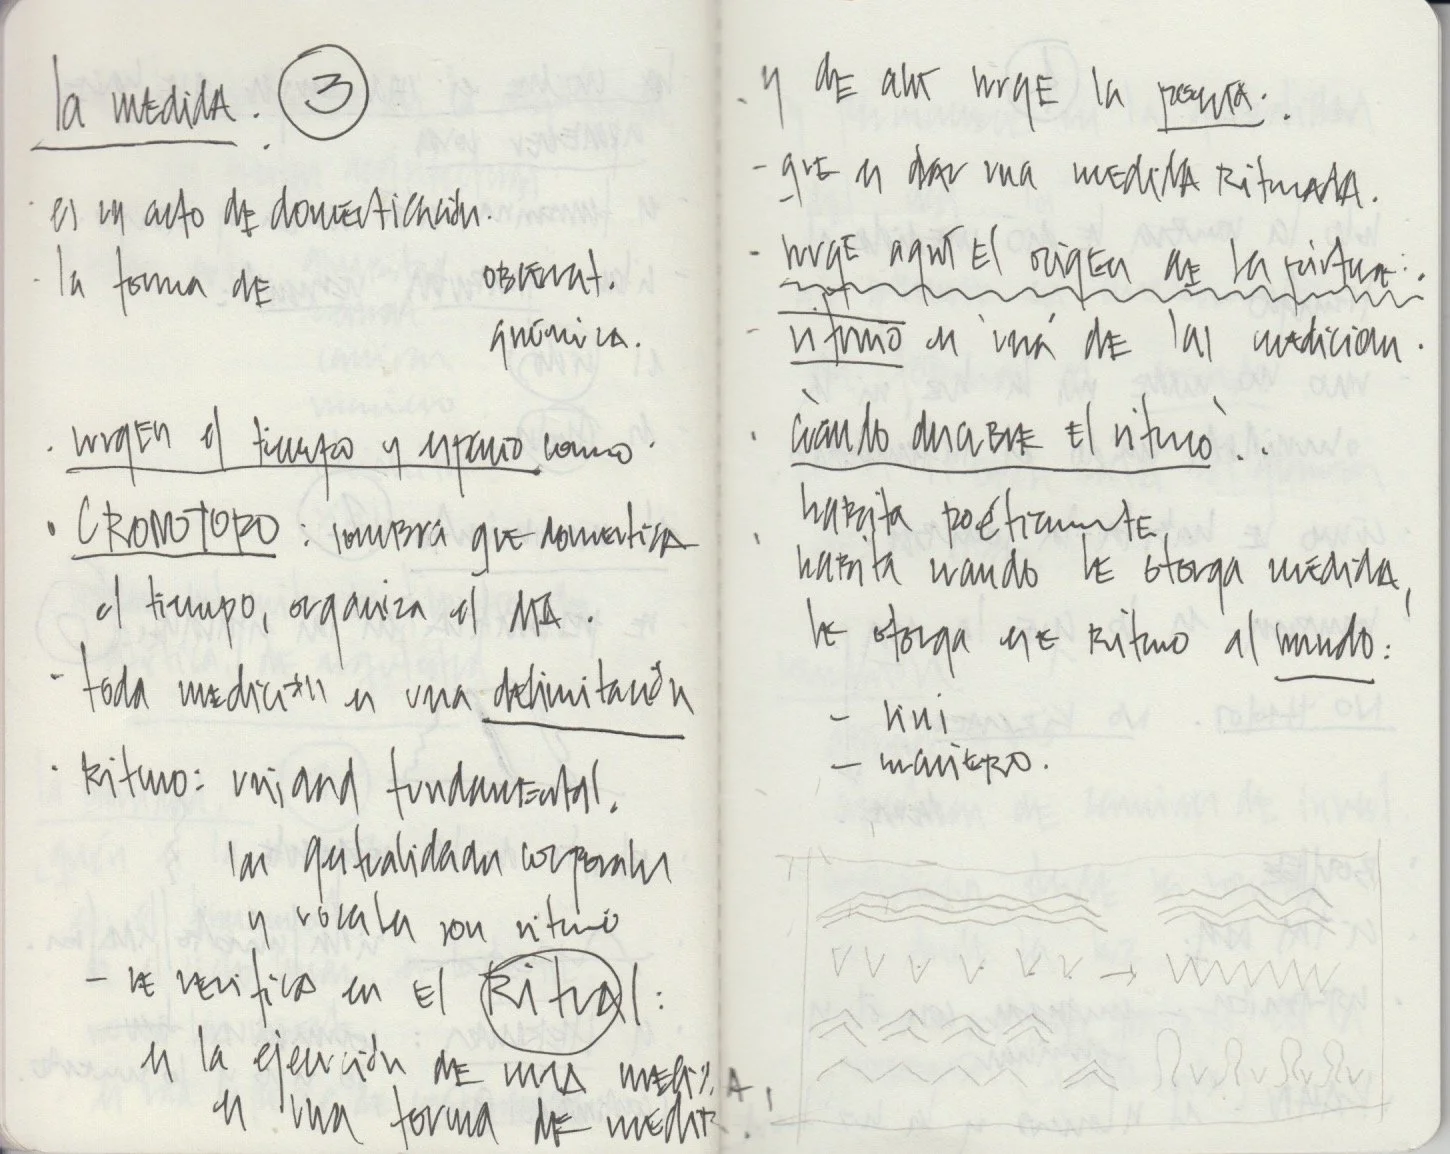 la medida. 3
· es un acto de domesticación.
· la forma de observat.
química.
· surgen el tiempo y espacio como ·
· CRONOTOPO : sombra que domestica
el tiempo, organiza el día.
- toda medición es una delimitación
· Ritmo: unidad fundamental.
las gestualidades corporales
y vocales son ritmo
- se verifica en el Ritual:
es la ejecución de una medida,
es una forma de medir.
· y de ahí surge la
- que es dar una medida Ritmada.
- surge aquí el origen de la pintura:.
- ritmo es 'una' de las medición.
· cuándo descubre el ritmo'..
habita poéticamente,
· habita cuando le otorga medida,
le otorga ese Ritmo al mundo:
-
-